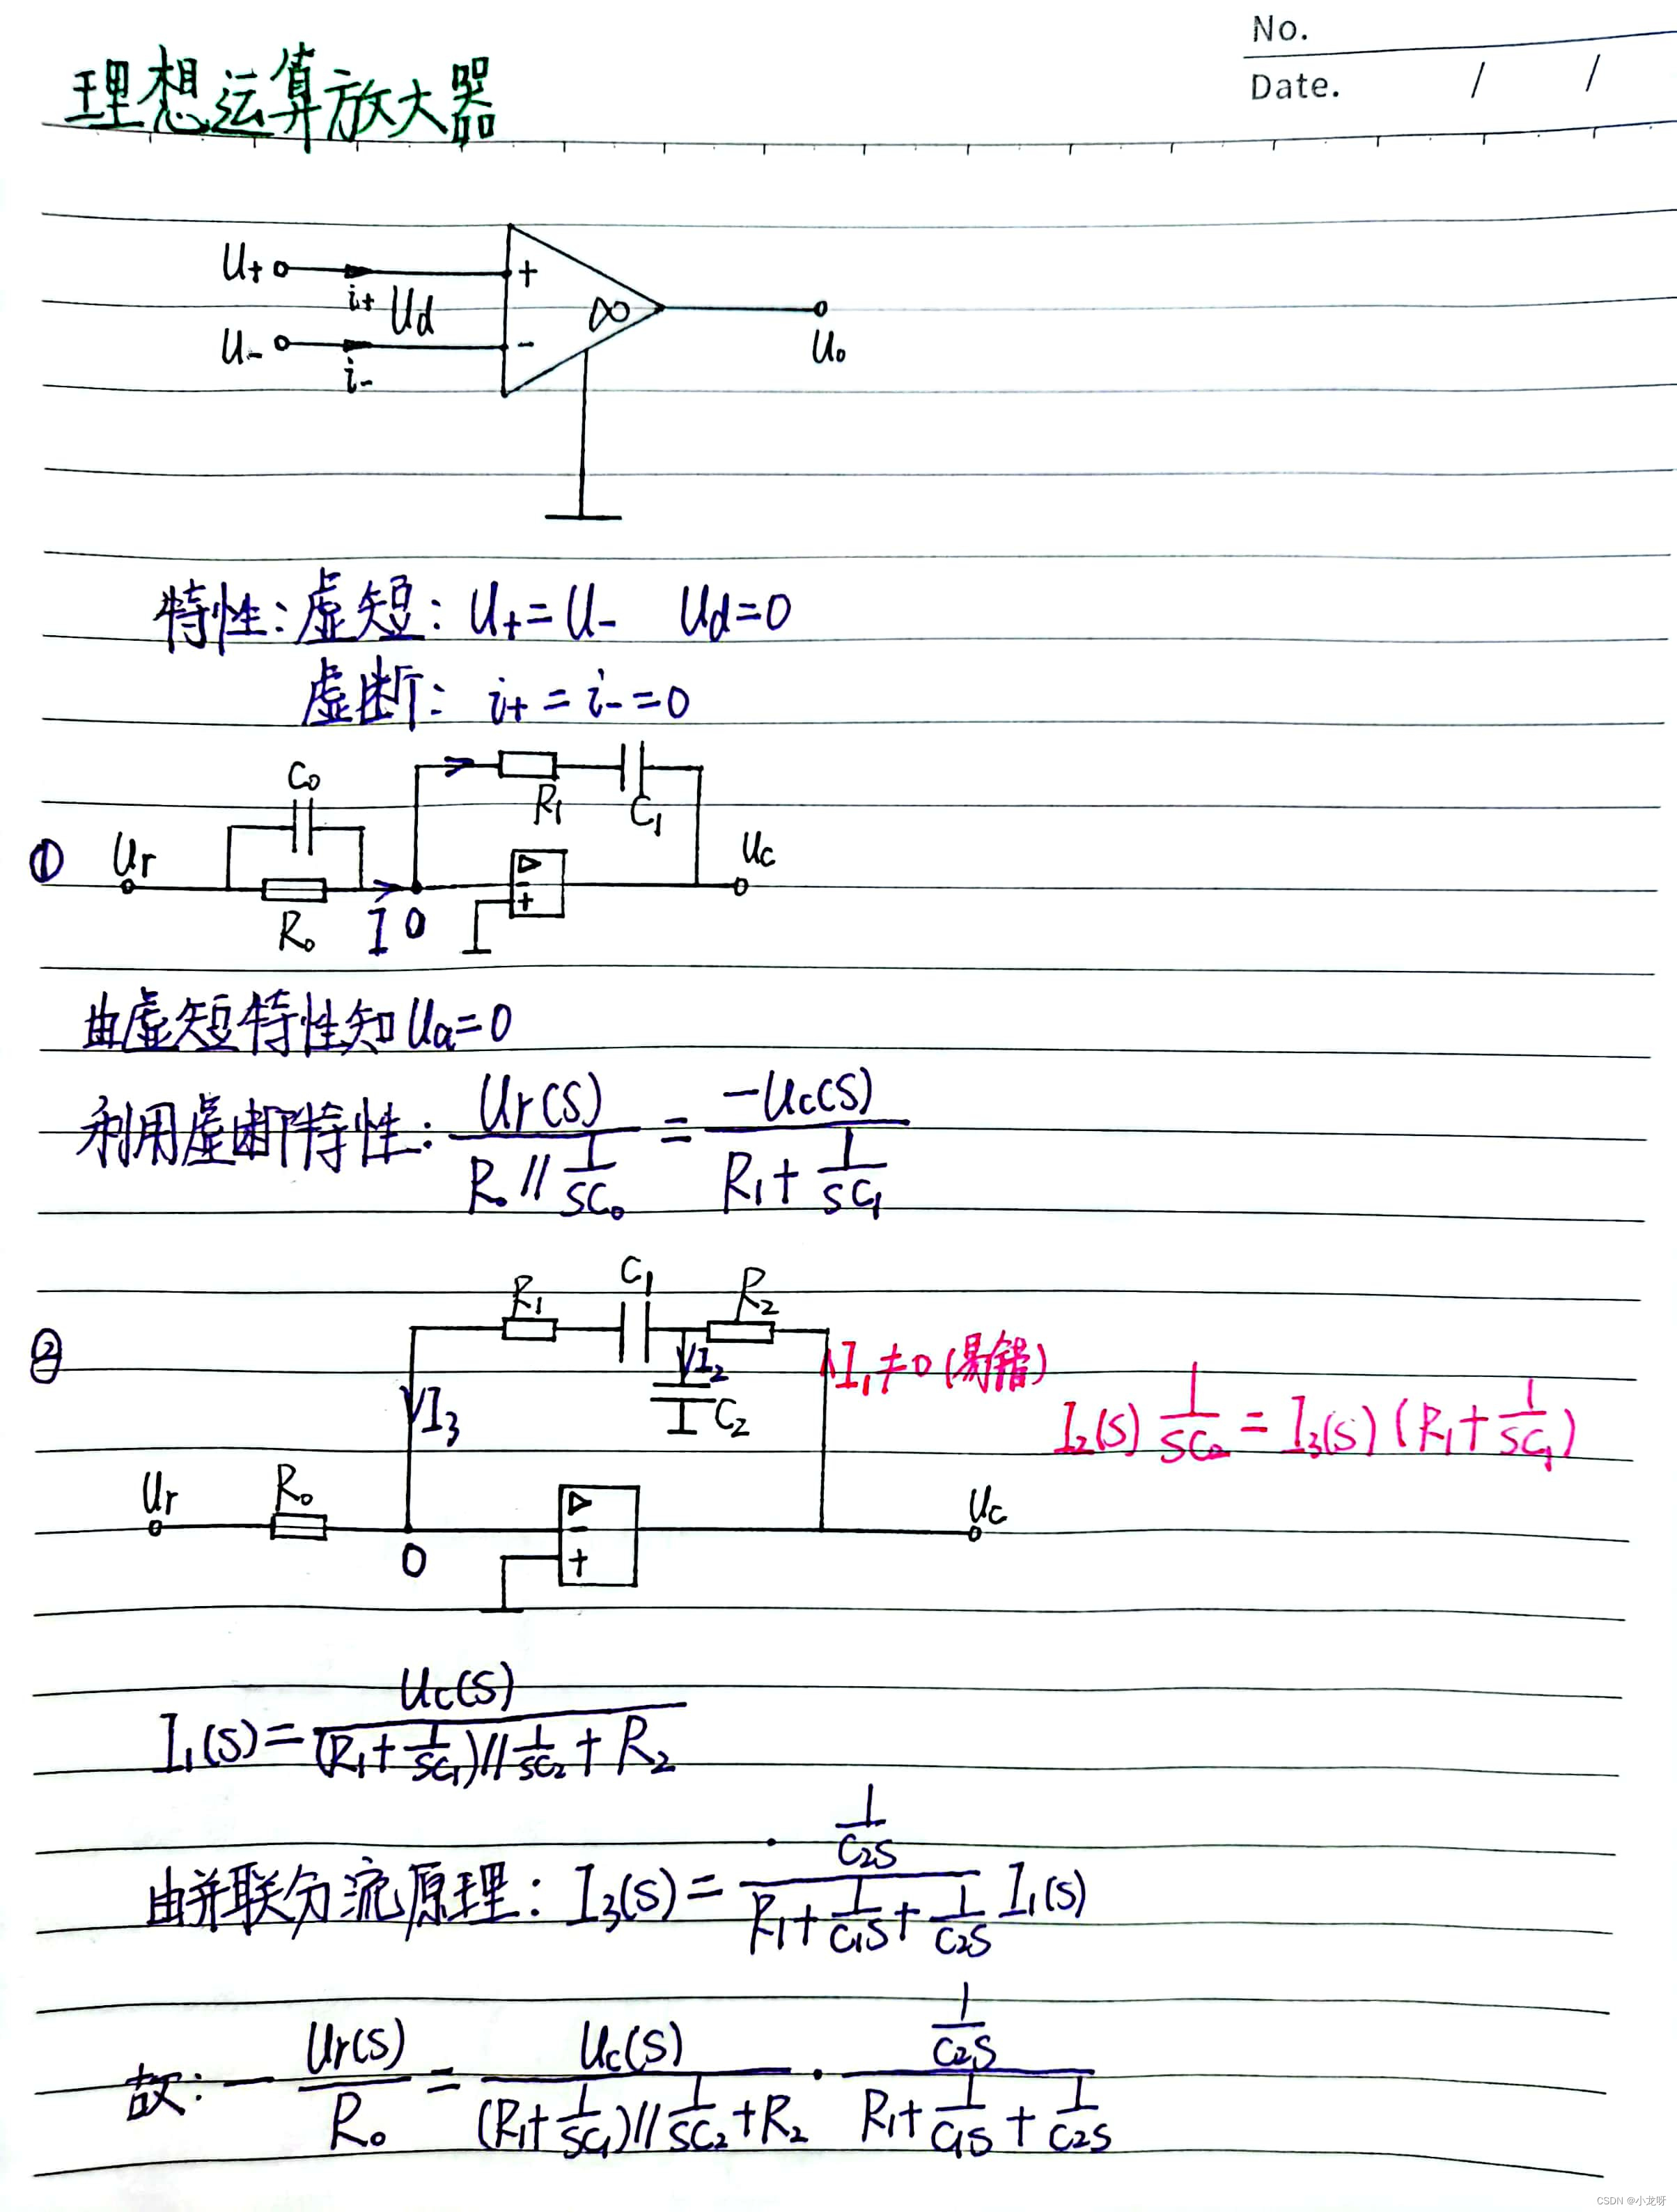 No.
Date. / /
理想运算放大器
U+ i+ + Ud ∞ U- i- - U₀
特性：虚短：U+=U- Ud=0
虚断：i+=i-=0
① Ur C₀ R₀ I 0 R₁ C₁ ▷ - + Uc
由虚短特性知Ua=0
利用虚断特性：Ur(s)/(R₀//(1/sC₀)) = -Uc(s)/(R₁+1/sC₁)
② R₁ C₁ R₂ I₂ C₂ I₃ Ur R₀ 0 ▷ - + Uc
I₁≠0(易错)
I₂(s) 1/sC₂ = I₃(s)(R₁+1/sC₁)
I₁(s)=Uc(s)/((R₁+1/sC₁)//(1/sC₂)+R₂)
由并联分流原理：I₃(s)=(1/C₂s)/(R₁+1/C₁s+1/C₂s) I₁(s)
故：-Ur(s)/R₀ = Uc(s)/((R₁+1/sC₁)//(1/sC₂)+R₂) · (1/C₂s)/(R₁+1/C₁s+1/C₂s)
CSDN @小龙呀